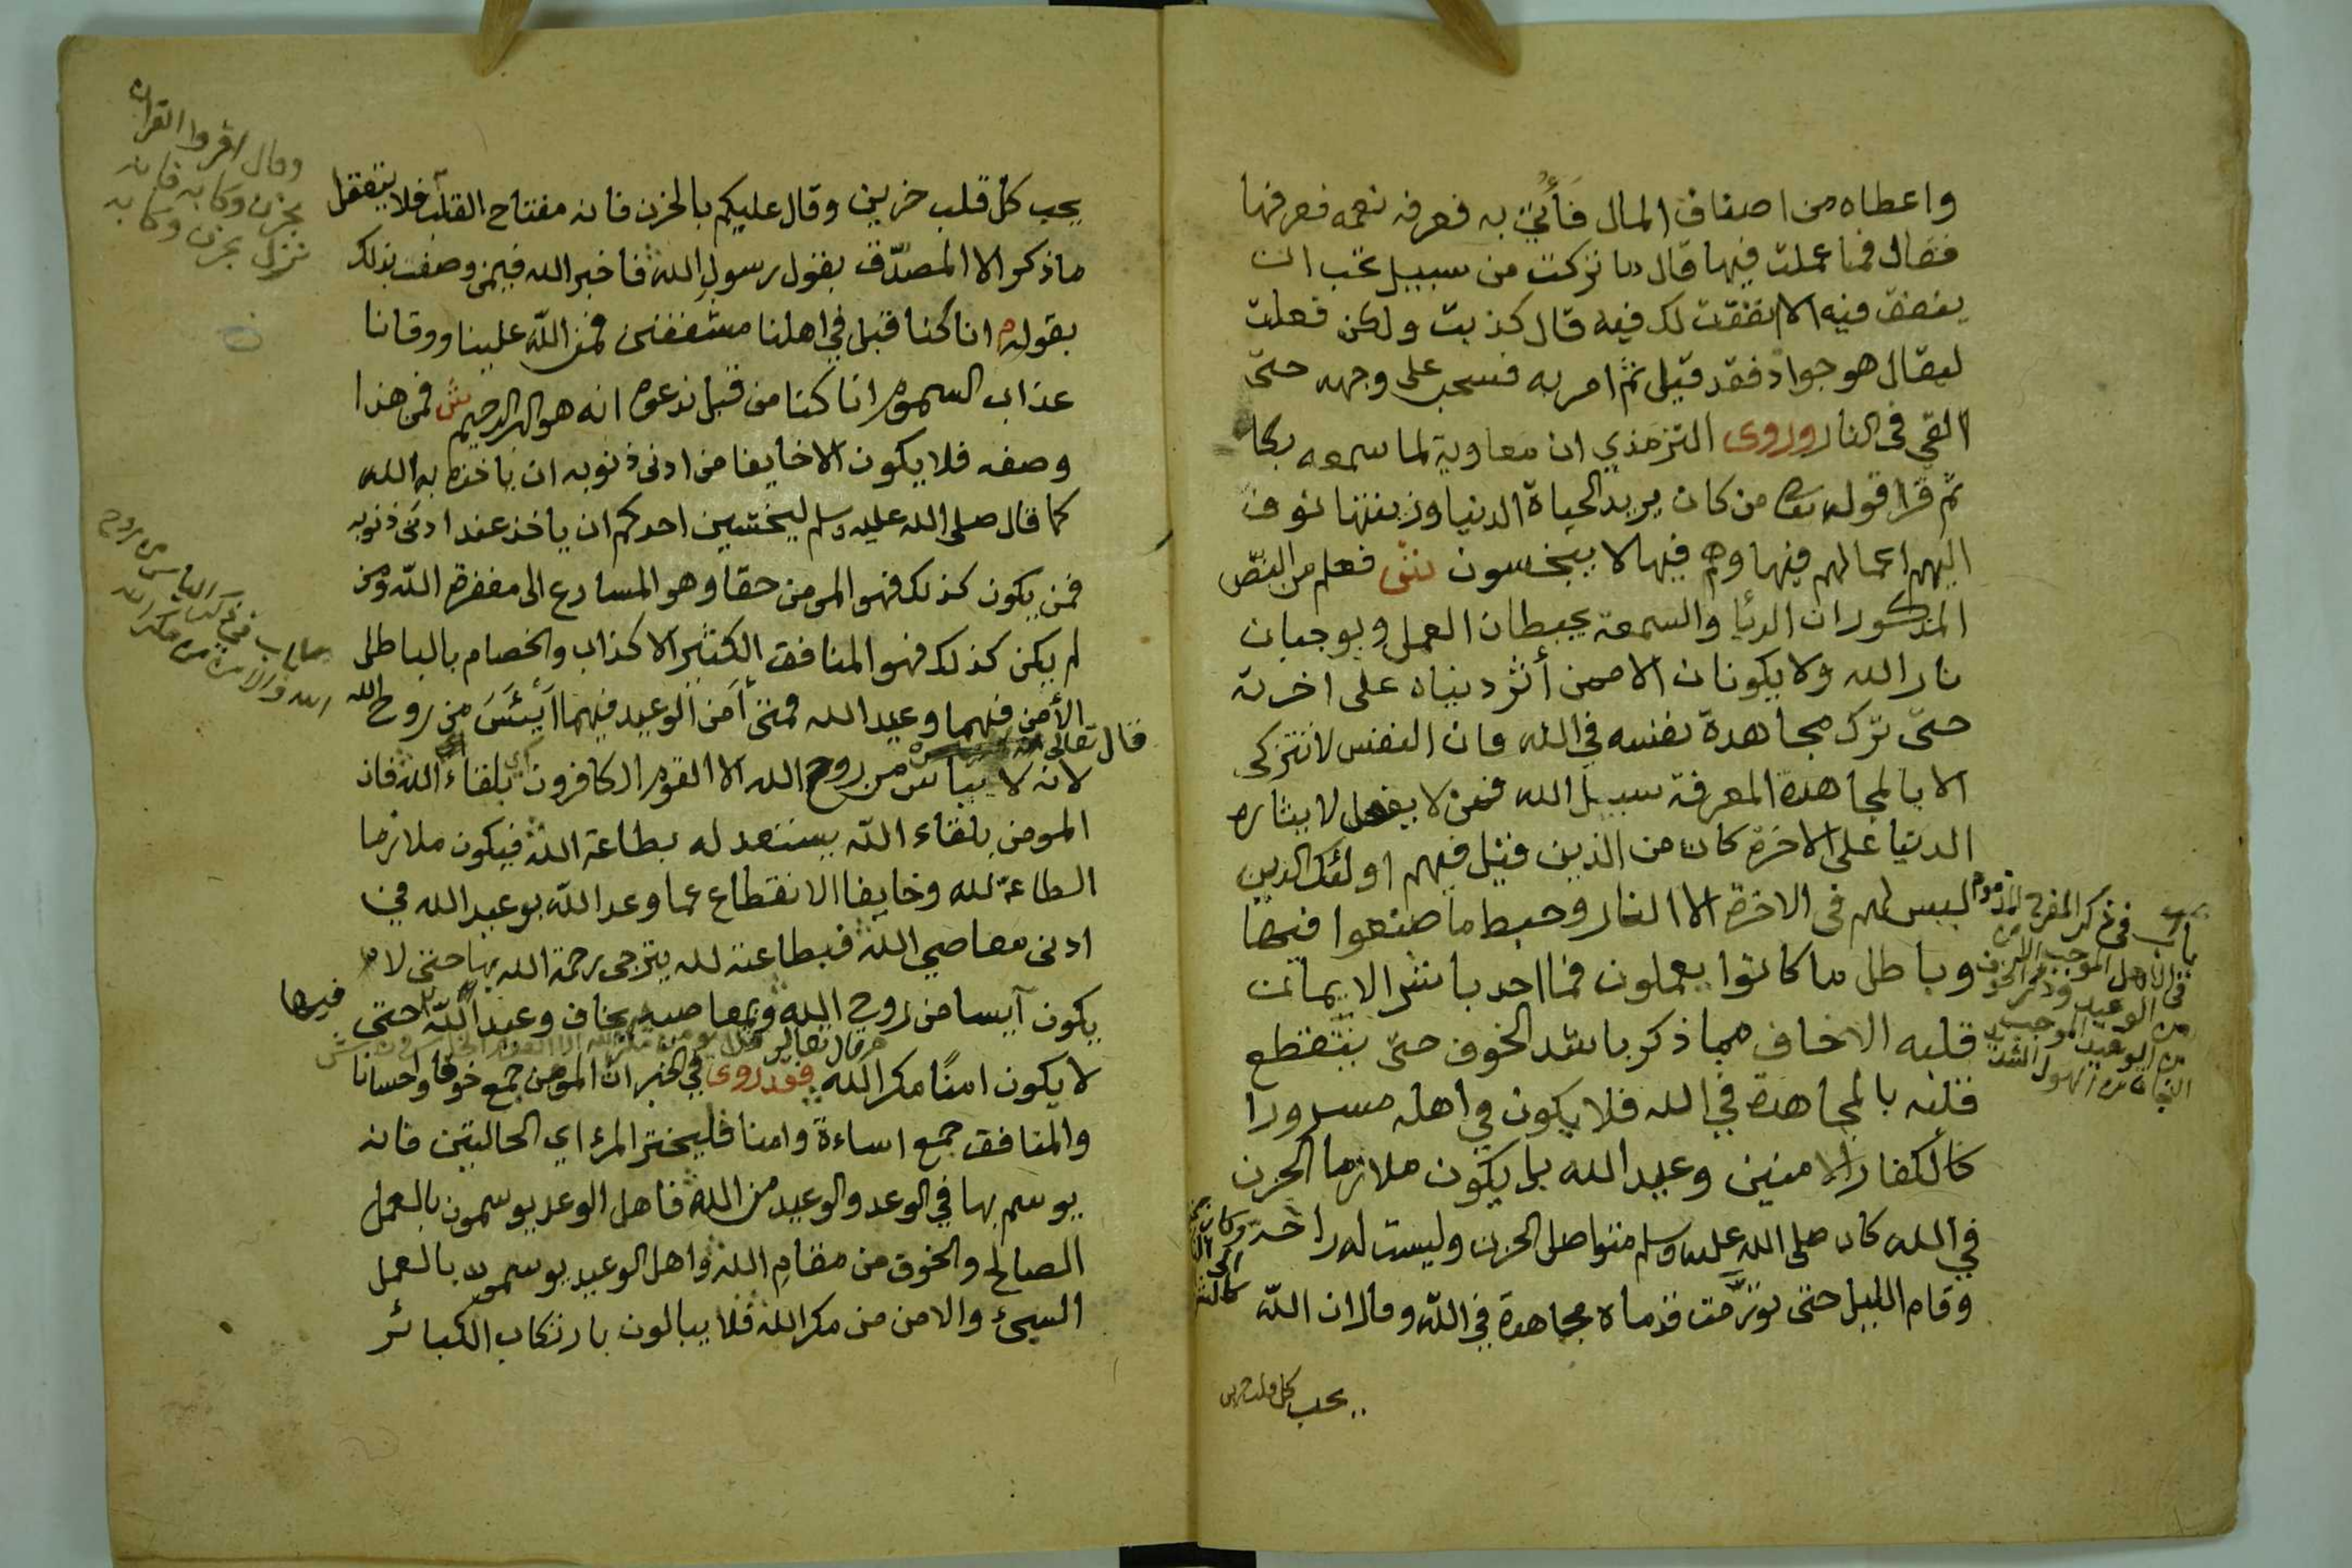 واعطاه من اصناف المال فَأُتِيَ به فعرفه نعمه فعرفها
فقال فما عملت فيها قال ما تركت من سبيل تحب ان
ينفق فيه الا انفقت لك فيه قال كذبت ولكن فعلت
ليقال هو جواد فقد قيل ثم امر به فسحب على وجهه حتى
القي في النار وروى الترمذي ان معاوية لما سمعه بكا
ثم قرا قوله من كان يريد الحياة الدنيا وزينتها نوف
اليهم اعمالهم فيها وهم فيها لا يبخسون ش فعلم من النص
المذكور ان الريا والسمعة يحبطان العمل ويوجبان
نار الله ولا يكونان الا ممن أثر دنياه على اخرته
حتى ترك مجاهدة نفسه في الله فان النفس لا تتزكى
الا بالمجاهدة المعرفة سبيل الله فمن لا يفعل لا يثاره
الدنيا على الاخرة كان من الذين قيل فيهم اولئك الذين
ليس لهم في الاخرة الا النار وحبط ما صنعوا فيها
وباطل ما كانوا يعملون فما احد باشر الايمان
قلبه الا خاف مما ذكر باشد الخوف حتى ينقطع
قلبه بالمجاهدة في الله فلا يكون في اهله مسرورا
كالكفار الامنين وعيد الله بل يكون ملازما الحزن
في الله كان صلى الله عليه وسلم متواصل الحزن وليست له راحة وكان
وقام الليل حتى تورّمت قدماه مجاهدة في الله وقال ان الله
يحب كل قلب حزين
باب في ذكر المفرح المذموم
في الاهل الموجب الامن
من الوعيد وذكر الخوف
من الوعيد الموجب
النجاة من الهول الشد
يحب كل قلب حزين وقال عليكم بالحزن فانه مفتاح القلب فلا يتفقل
ما ذكر الا المصدّق بقول رسول الله فاخبر الله فيمن وصفت بذلك
بقوله انا كنا قبل في اهلنا مشفقين فمن الله علينا ووقانا
عذاب السموم انا كنا من قبل ندعوه انه هو البر الرحيم ش فمن هذا
وصفه فلا يكون الا خايفا من ادنى ذنوبه ان ياخذه به الله
كما قال صلى الله عليه وسلم ليخشين احدكم ان ياخذ عند ادنى ذنوبه
فمن يكون كذلك فهو المومن حقا وهو المسارع الى مغفرة الله ومن
لم يكن كذلك فهو المنافق الكثير الاكذاب والخصام بالباطل
الأمن فيهما وعيد الله فمتى أمَن الوعيد فيهما أيِئسَ من روح الله
قال تعالى
لانه لا يياس من روح الله الا القوم الكافرون اي بلقاء الله فان
المومن بلقاء الله يستعد له بطاعة الله فيكون ملازما
الطاعة لله وخايفا الانقطاع عما وعد الله بوعيد الله في
ادنى معاصي الله فبطاعته لله يترجى رحمة الله بها حتى لا
يكون آيسا من روح الله وبمعاصيه يخاف وعيد الله حتى فيها
لا يكون امنًا مكر الله فقد روى في الخبر ان المومن جمع خوفا واحسانا
والمنافق جمع اساءة وامنا فليختر المرء اي الحالتين فانه
يوسم بها في الوعد والوعيد من الله فاهل الوعد يوسمون بالعمل
الصالح والخوف من مقام الله واهل الوعيد يوسمون بالعمل
السيئ والامن من مكر الله فلا يبالون بارتكاب الكبائر
وقال اقروا القرآن
بحزن وكابه فانه
نزل بحزن وكابه
باب في ذكر الياس من روح
الله والامن من مكر الله